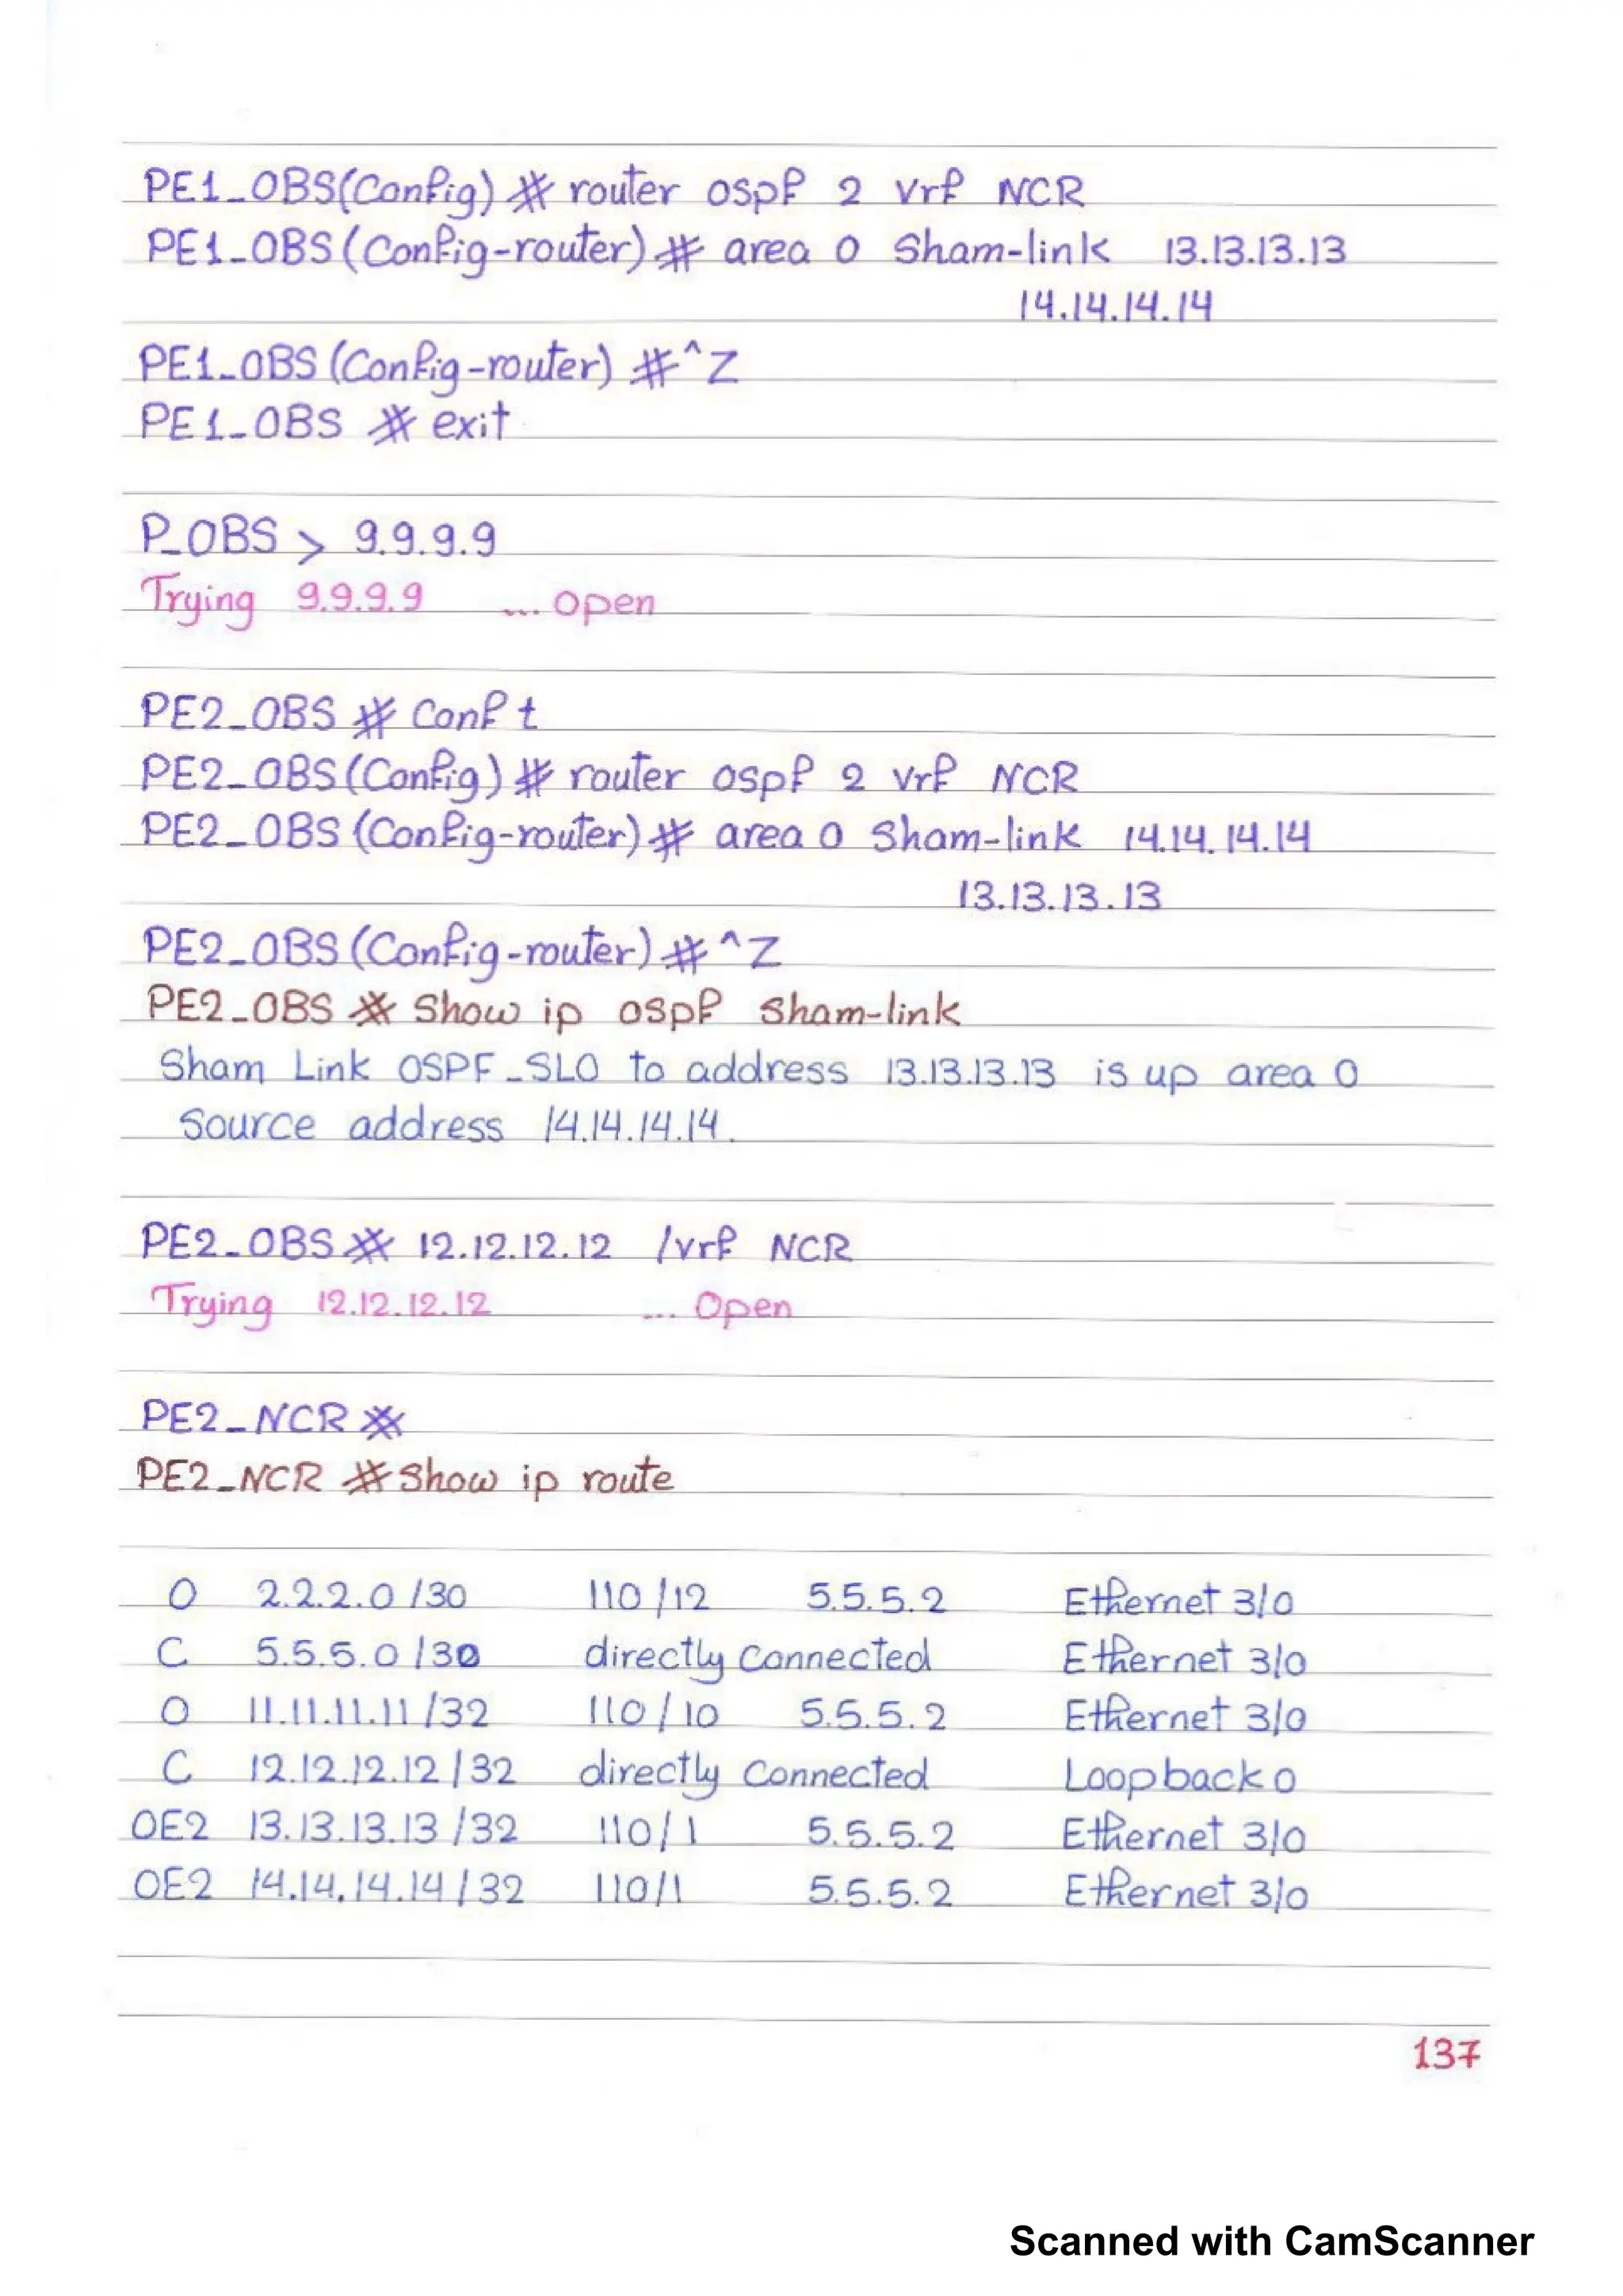 PE1_OBS(Config) # router ospf 2 vrf NCR
PE1_OBS (Config-router) # area 0 Sham-link 13.13.13.13
14.14.14.14
PE1_OBS (Config-router) #^Z
PE1_OBS # exit
P_OBS > 9.9.9.9
Trying 9.9.9.9 ... Open
PE2_OBS # Conf t
PE2_OBS (Config) # router ospf 2 vrf NCR
PE2_OBS (Config-router) # area 0 Sham-link 14.14.14.14
13.13.13.13
PE2_OBS (Config-router) # ^Z
PE2_OBS # Show ip ospf Sham-link
Sham Link OSPF_SL0 to address 13.13.13.13 is up area 0
Source address 14.14.14.14.
PE2_OBS # 12.12.12.12 /vrf NCR
Trying 12.12.12.12 ... Open
PE2_NCR #
PE2_NCR # Show ip route
O 2.2.2.0 /30 110 /12 5.5.5.2 Ethernet 3/0
C 5.5.5.0 /30 directly Connected Ethernet 3/0
O 11.11.11.11 /32 110 / 10 5.5.5.2 Ethernet 3/0
C 12.12.12.12 / 32 directly Connected Loopback 0
OE2 13.13.13.13 /32 110/1 5.5.5.2 Ethernet 3/0
OE2 14.14.14.14 / 32 110/1 5.5.5.2 Ethernet 3/0
137
Scanned with CamScanner